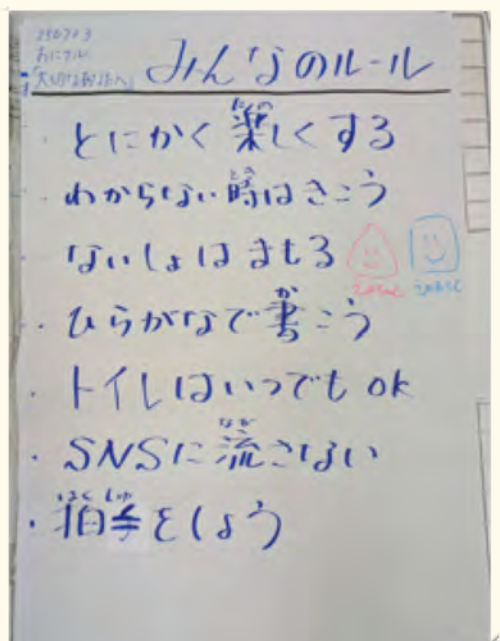 250703
おにクル
「大切なあなたへ」
みんなのルール
・とにかく楽しくする
・わからない時はきこう
ないしょはまもる
・ひらがなで書こう
・トイレはいつでもok
・SNSに流さない
・拍手をしよう